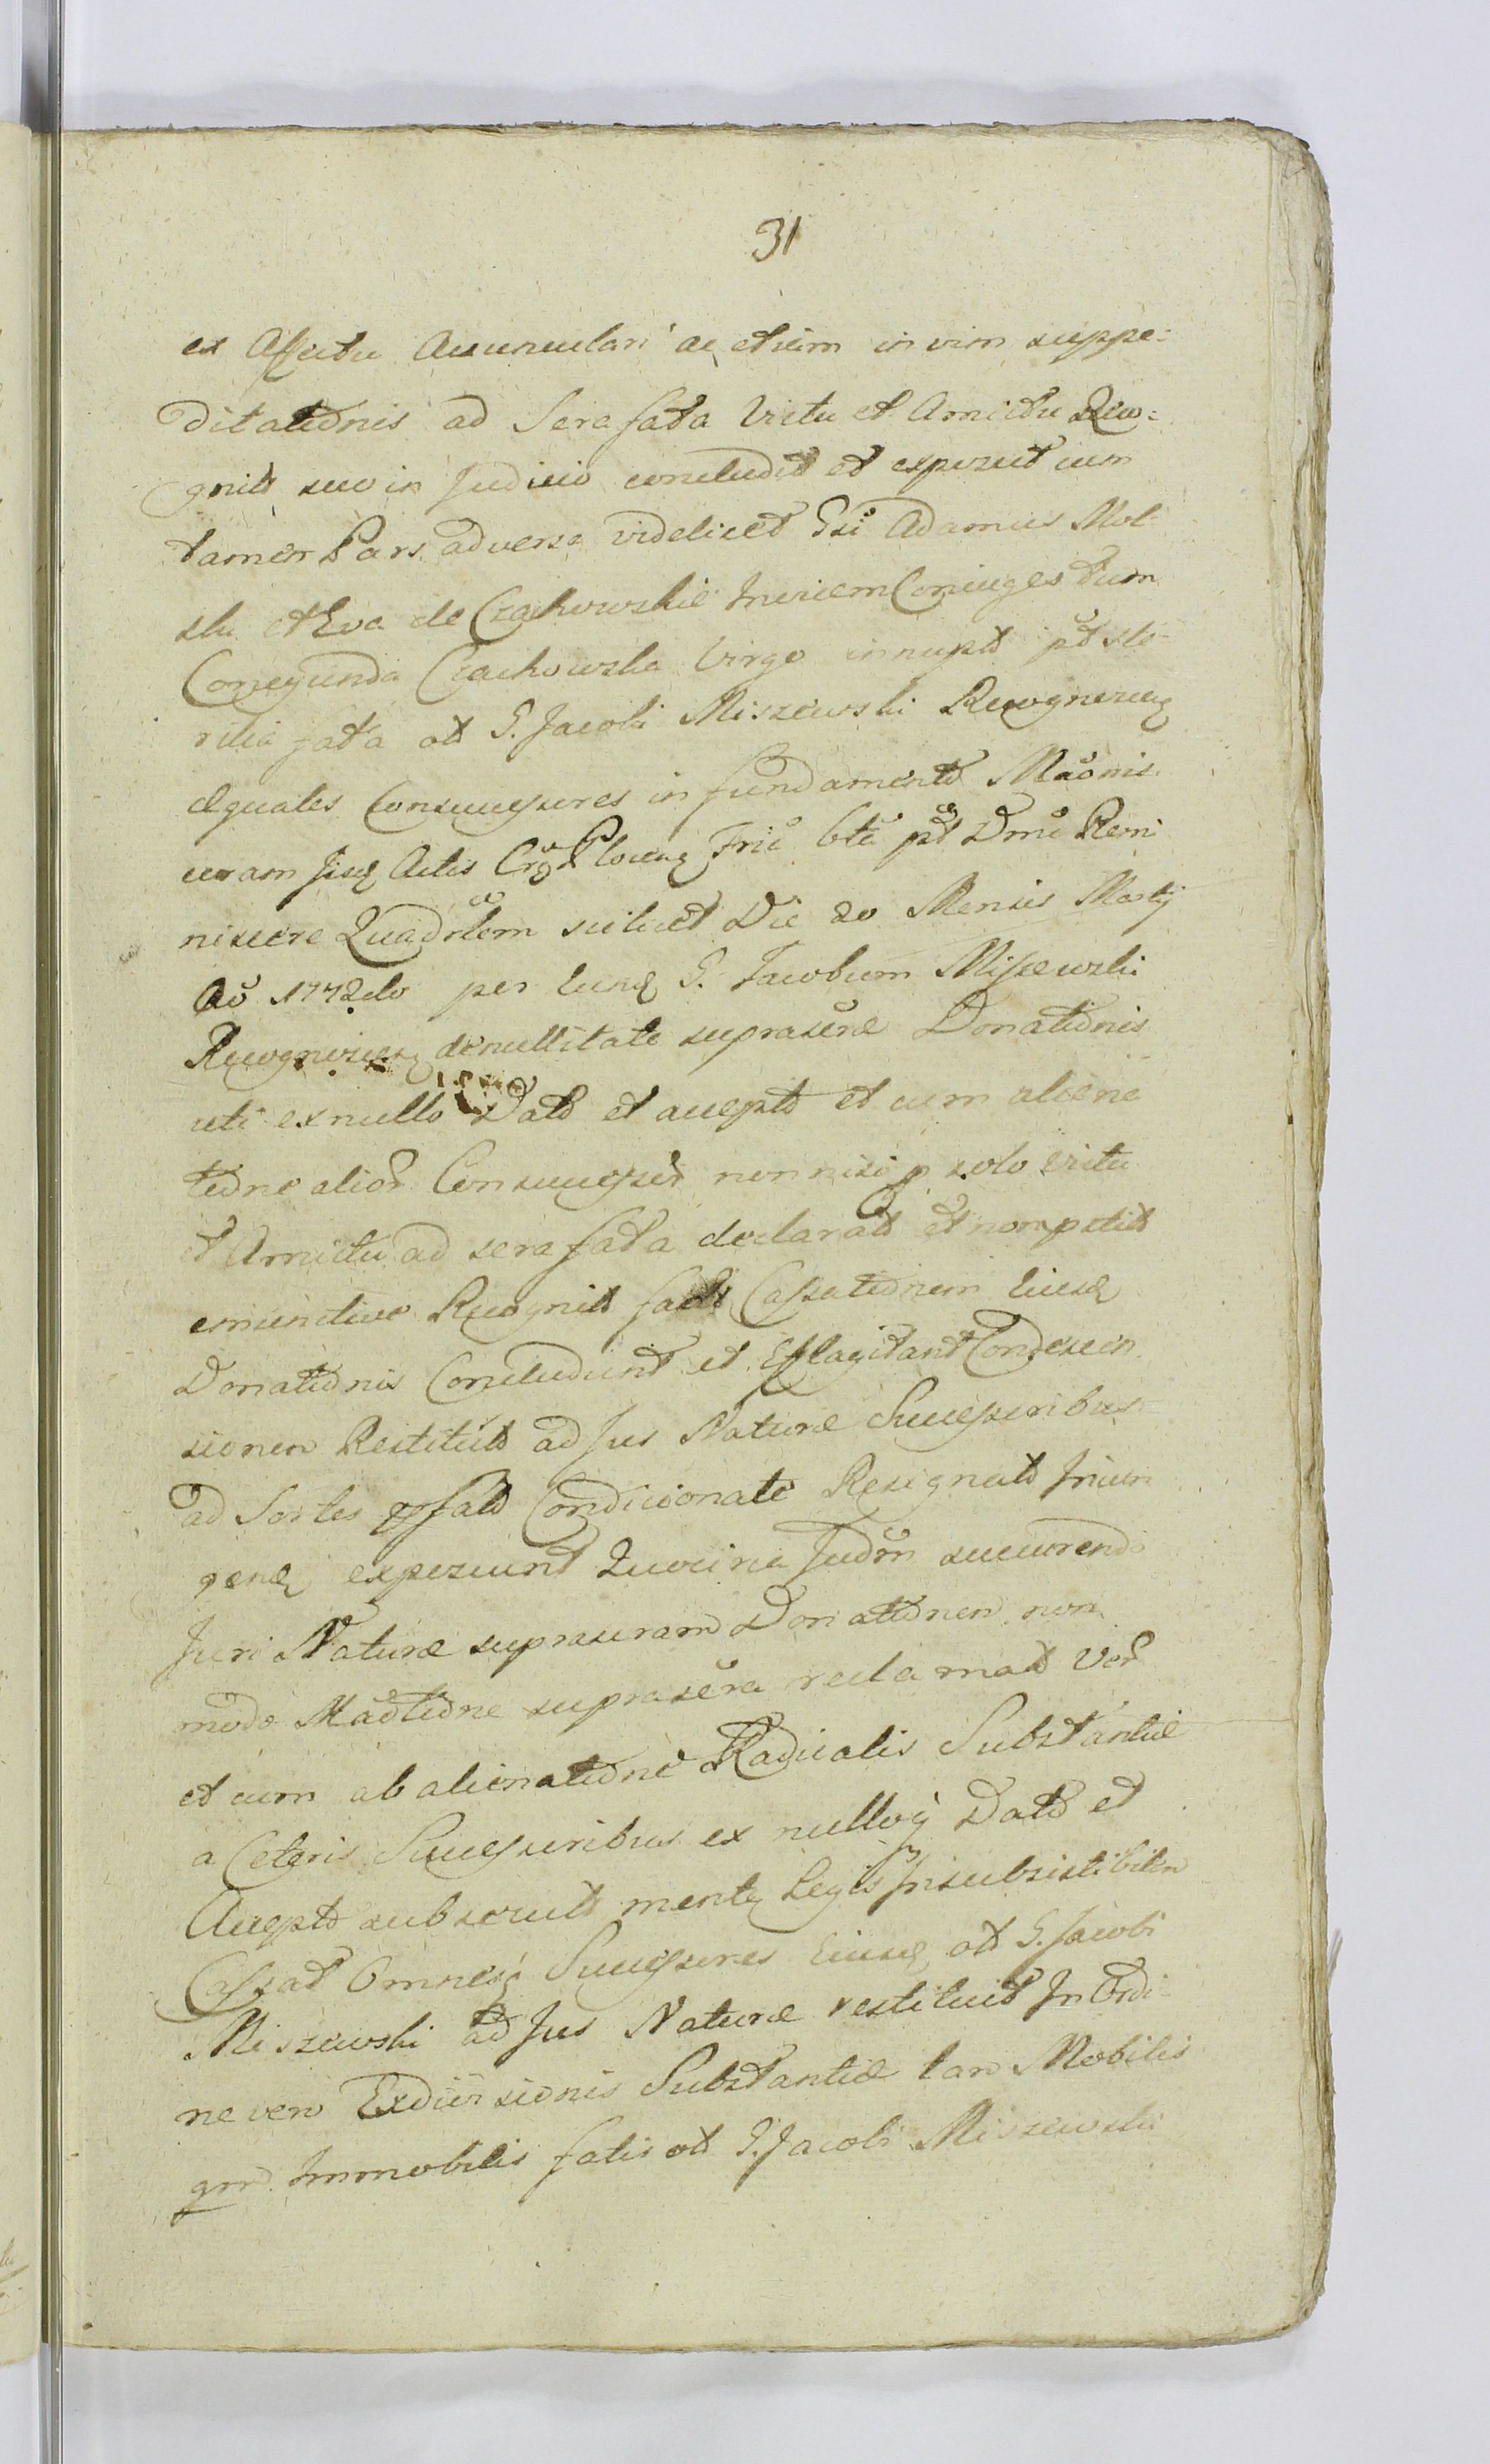 31
ex Affectu Avunculari ac etiam in vim suppe:
ditationis ad Sera fata Victu et Amictu Reco:
gnit suo in Judicio concludit et exposuit cum
tamen Pars adversa videlicet Gsi Adamus Mol-
ski et Eva de Czachowskie Invicem Coniuges tum
Conegunda Czachowska Virgo innupt pt ste-
rilia fata ol G. Jacobi Miszewski Recognoscen
æquales Consuccessores in fundamento Maonis
coram Jisd Actis Crg Plocen Frie 6ta pt Dnm Remi
niscere Quadrlem scilicet Die 20 Mensis Martij
Ao 1772do per eund G. Jacobum Miszewski
Recognoscen de nullitate suprascræ Donationis
uti ex nullo Dato et accepto et cum aliena
tione alior Consuccessor non nisi p solo victu
et Amictu ad sera fata declarat et non petit
emunctive Recognit fact Cassationem Eiusd
Donationis Concludunt et Efflagitant Condescen
sionem Restitut ad Jus Naturæ Successoribus
ad Sortes pfat Condicionate Resignat Invicem
gend exposcunt Quocirca Judm sucurendo
Juri Naturæ suprascram Donationem non
modo Maotione suprascra reclamat Ver
et cum abalienatione Radicalis Substantiæ
a Ceteris Successoribus ex nulloq Dato et
Accepto subsecut mente Legis Insubsistibilem
Cassat Omnesq Successores Eiusd ol G. Jacobi
Miszewski ad Jus Naturæ restituit In Ordi-
ne vero Exdivisionis Substantiæ tam Mobilis
qm Immobilis fatis ol G. Jacobi Miszewski